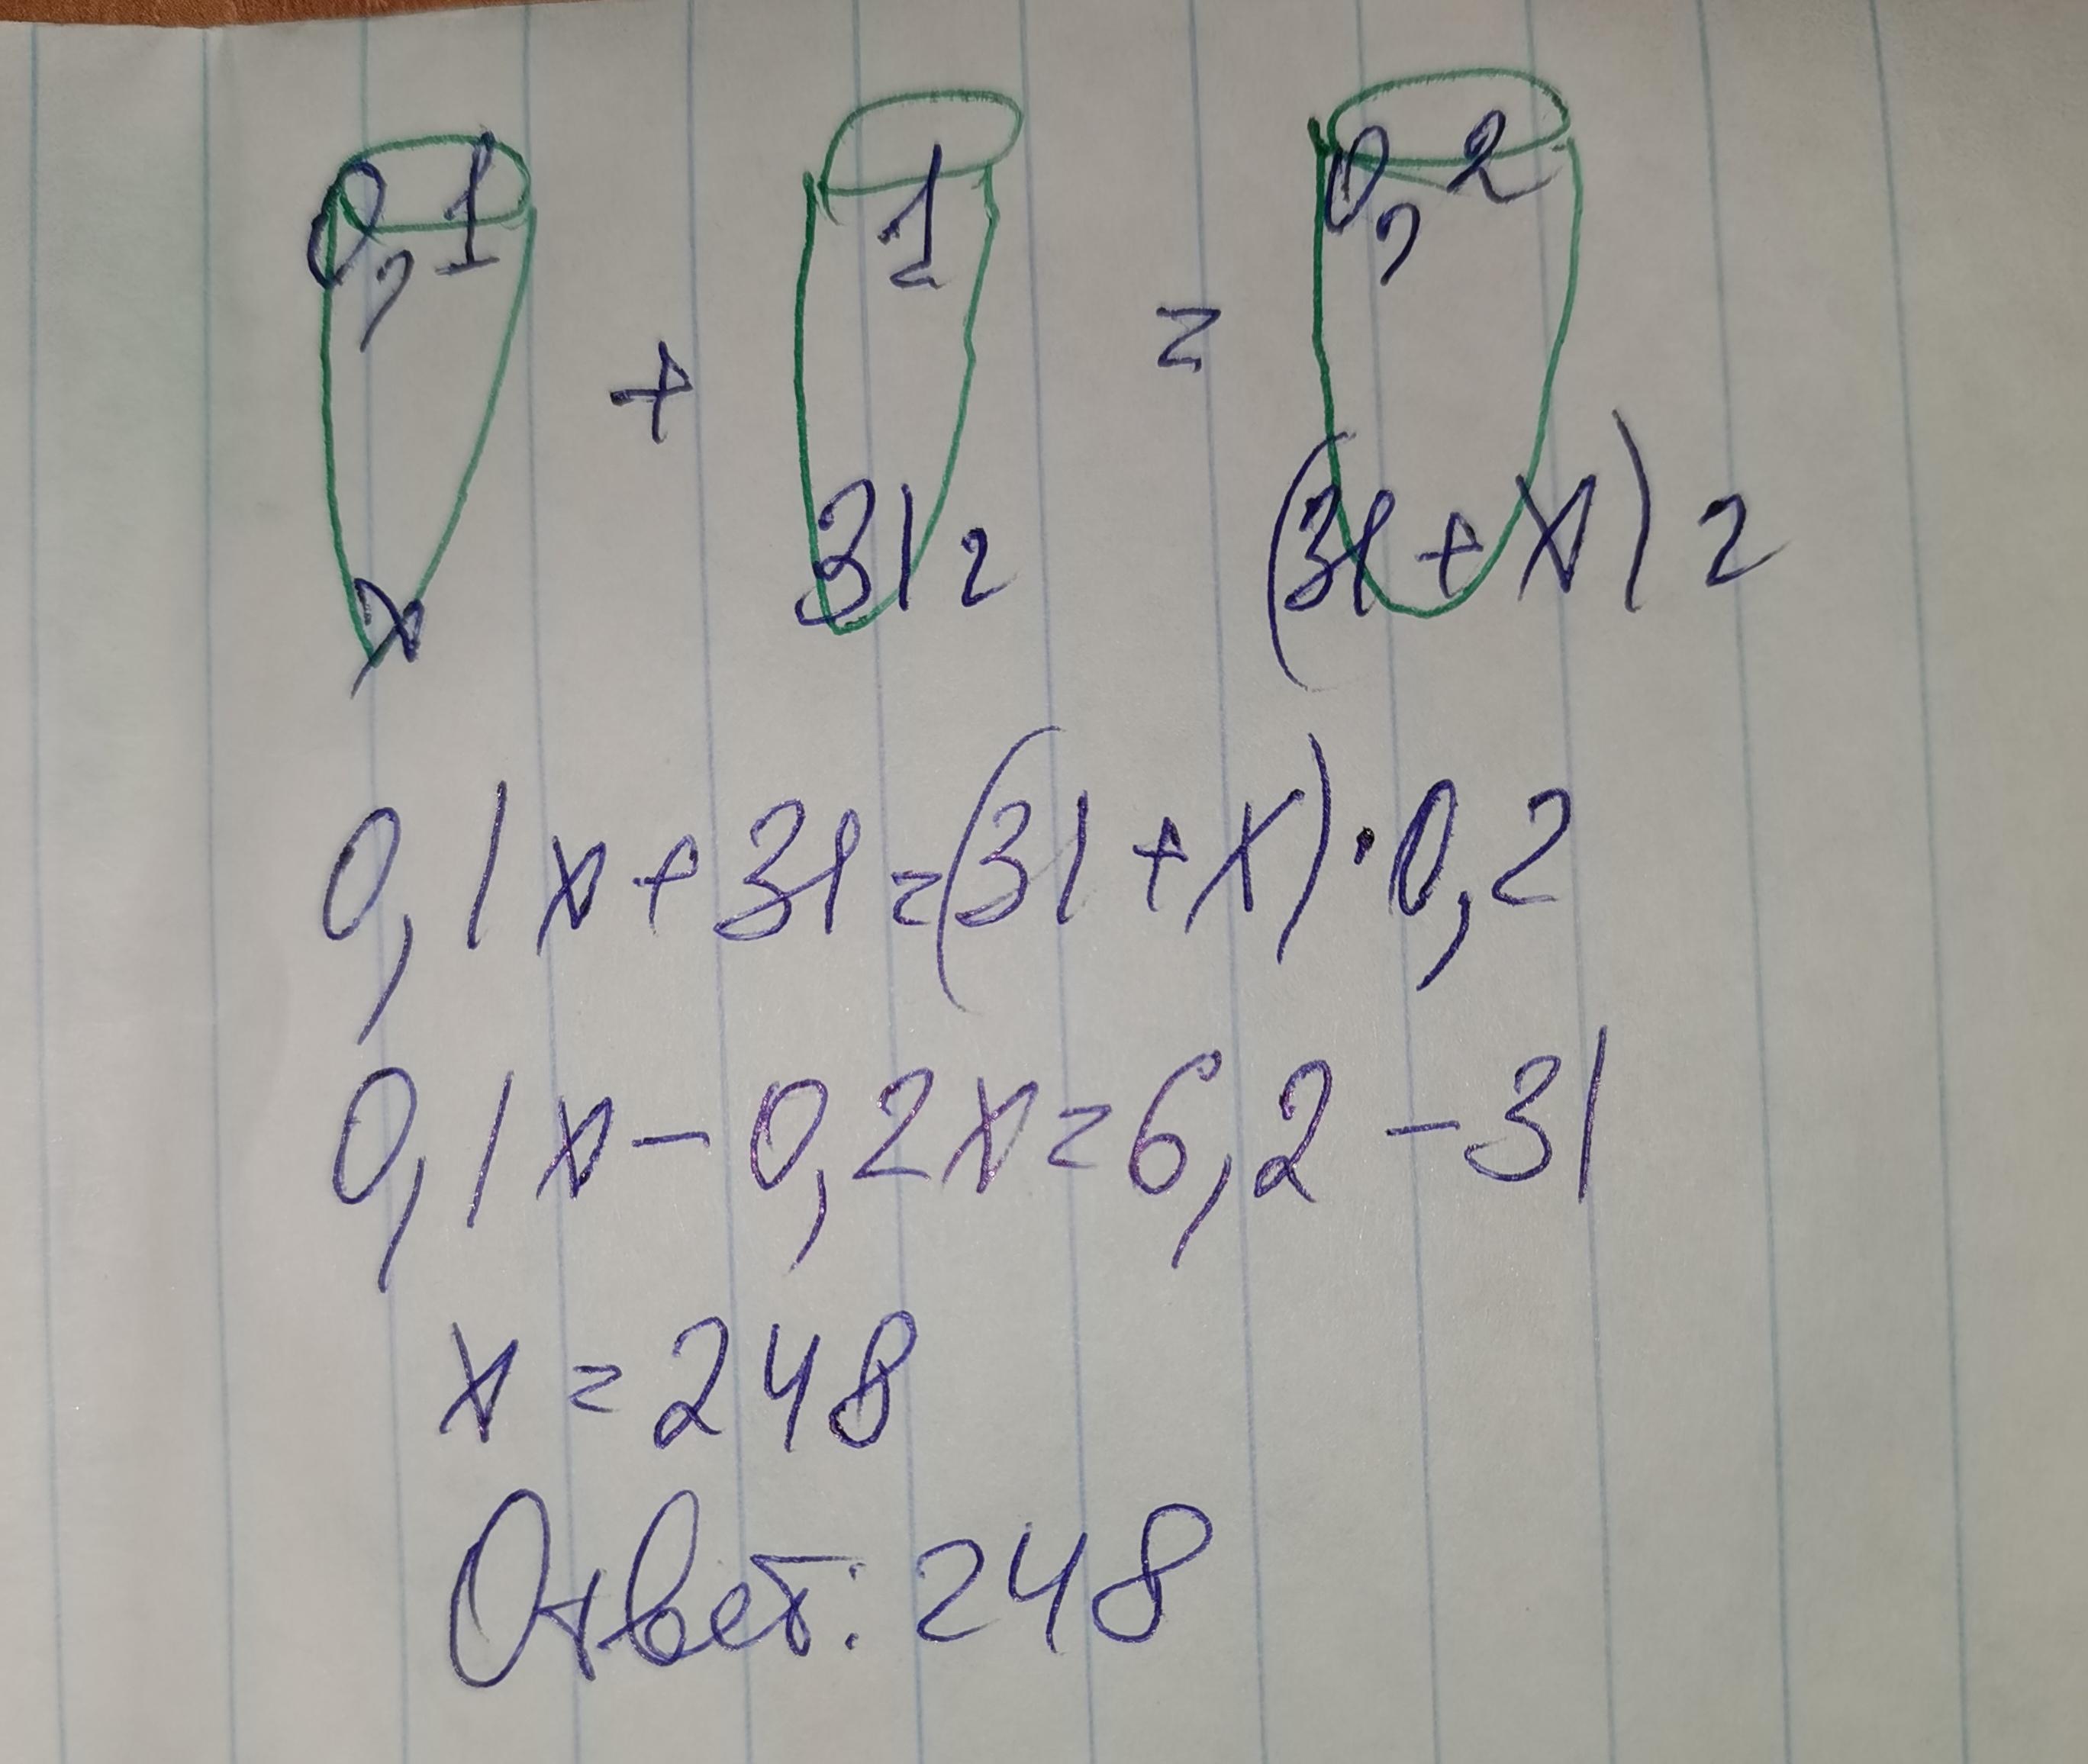 0,1 + 1 = 0,2
x 31 г (31+x) г
0,1x+31=(31+x)·0,2
0,1x-0,2x=6,2-31
x=248
Ответ: 248